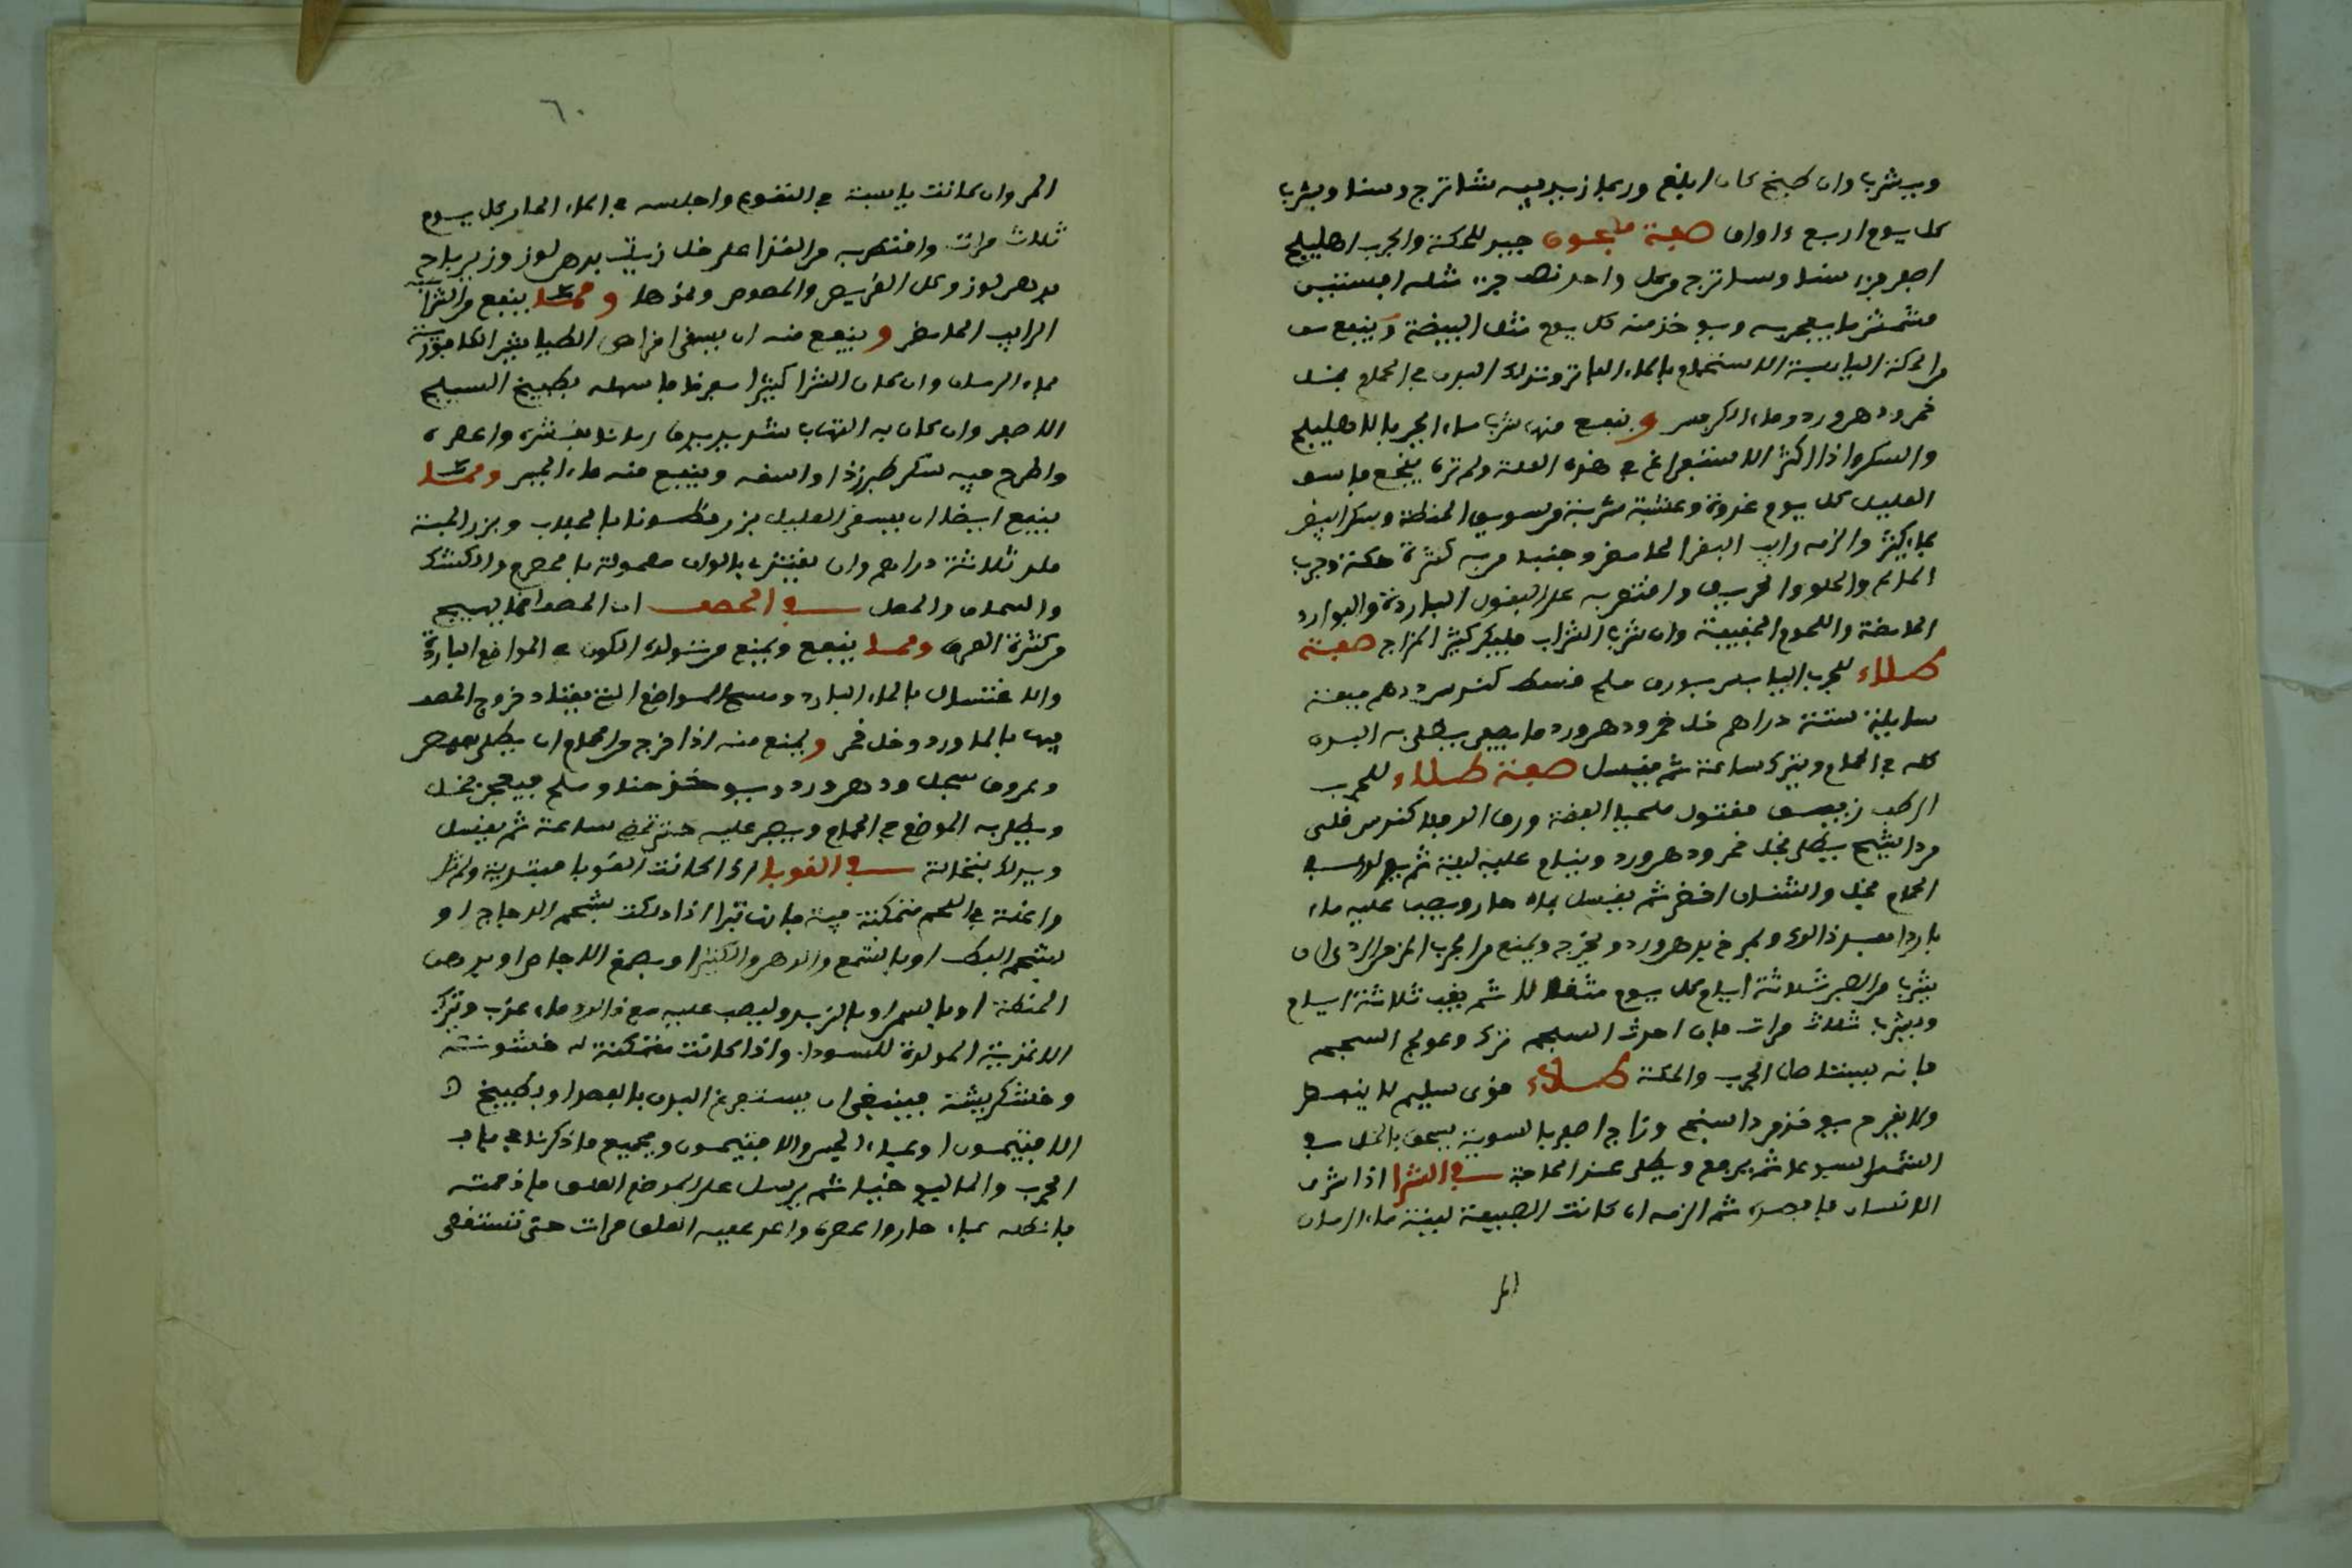 ويشرب وان طبخ كان ابلغ وربما زيد فيه شاترج وسنا ويشرب
كل يوم اربع اواق صفة معجون جيد للحكة والجرب اهليلج
اصفر جزء سنا وشاترج من كل واحد نصف جزء مثله افسنتين
مشمش ما يعجن به ويوخذ منه كل يوم مثل البيضة وينفع
من الحكة اليابسة الاستحمام بالماء الفاتر وتدلك البدن في الحمام بخل
خمر ودهن ورد وماء الكرفس وينفع منه شرب ماء الجبن بالاهليلج
والسكر واذا اكثر الاستفراغ في هذه العلة ولم تره ينجع فاسق
العليل كل يوم غدوة وعشية شربة من سويق الحنطة وسكر ابيض
بماء كثير والزمه رايب البقر الحامض وجنبه من به كثرة حكة وجرب
المالح والحلو والحريف واقتصر به على البقول الباردة والبوارد
الحامضة واللحوم الخفيفة وان شرب الشراب فليكن كثير المزاج صفة
طلاء للجرب اليابس بورق ملح قسط كندس درهم ميعة
سايلة ستة دراهم خل خمر ودهن ورد ما يكفي يطلى به البدن
كله في الحمام ويترك ساعة ثم يغسل صفة طلاء للجرب
الرطب زيبق مقتول اقليميا الفضة ورق الدفلا كندس قلى
مرداسنج يطلى بخل خمر ودهن ورد وينام عليه ليلة ثم يدلك في
الحمام بخل واشنان اخضر ثم يغسل بماء حار ويصب عليه ماء
باردا بعد ذلك ويمرخ بدهن ورد ويخرج وينفع من الجرب المزمن الردي ان
يشرب من الصبر ثلاثة ايام كل يوم مثقالا ثم يغب ثلاثة ايام
ويشرب ثلاث مرات فان احدث السحج ترك وعولج السحج
فانه يستاصل الجرب والحكة طلاء قوي سليم لا ينفط
ولا يقرح يوخذ مرداسنج وزاج اصفر بالسوية يسحق بالخل في
الشمس اسبوعا ثم يرفع ويطلى عند الحاجة في الشرا اذا شرى
الانسان فافصده ثم الزمه ان كانت الطبيعة لينة ماء الرمان
المر
٦٠
المر وان كانت يابسة في التقويم واجلسه في الماء الحار كل يوم
ثلاث مرات واقتصر به من الغذا على خل زيت بدهن لوز وزيرباج
بدهن لوز وكل القريص والمصوص ونحوها ومما ينفع من الشرا
الرايب الحامض وينفع منه ان يسقى اقراص الطباشير الكافورية
بماء الرمان وان كان الشرا كثيرا بعد فاسهله بطبيخ الهليلج
الاصفر وان كان به التهاب شديد فدق رمانا بقشره واعصره
واطرح فيه سكر طبرزذ اواسقه وينفع منه ماء الجبن ومما
ينفع ايضا ان يسقى العليل بزر قطونا بالجلاب وبزر البنج
ثلاثة دراهم وان يغتذي بالوان معمولة بالحصرم والكشك
والسماق والخل في الحصف ان الحصف انما يهيج
من كثرة العرق ومما ينفع ويمنع من تولده الكون في المواضع الباردة
والاغتسال بالماء البارد ومسح المواضع التي يعتاد خروج الحصف
فيها بالماورد وخل خمر ويمنع منه اذا خرج من الحمام ان يطلى
ودهن ورد ويوخذ حنا وملح فيعجن بخل
ويطلى به الموضع في الحمام ويصبر عليه حتى ساعة ثم يغسل
ويدلك بنخالة في القوبا اذا كانت القوبا مبتدية ولم تكن
واغلة في اللحم متمكنة فيه فانها تبرا اذا دلكت بشحم الدجاج او
بشحم البط او بالشمع والدهن والكثيرا وبصمغ الاجاص او بدهن
الحنطة او بالسمن او بالزبد وليصب عليه مع ذلك ماء عذب وتترك
الاغذية المولدة للسوداء واذا كانت متمكنة له خشونة
وخشكريشة فينبغي ان يستفرغ البدن بالفصد او بطبيخ
الافتيمون او بماء الجبن والافتيمون وبجميع ما ذكرنا في باب
الجرب والماليخوليا ثم يرسل على الموضع العلق فاذا مصته
فانطله بماء حار واعصره واعد عليه العلق مرات حتى تستنقي